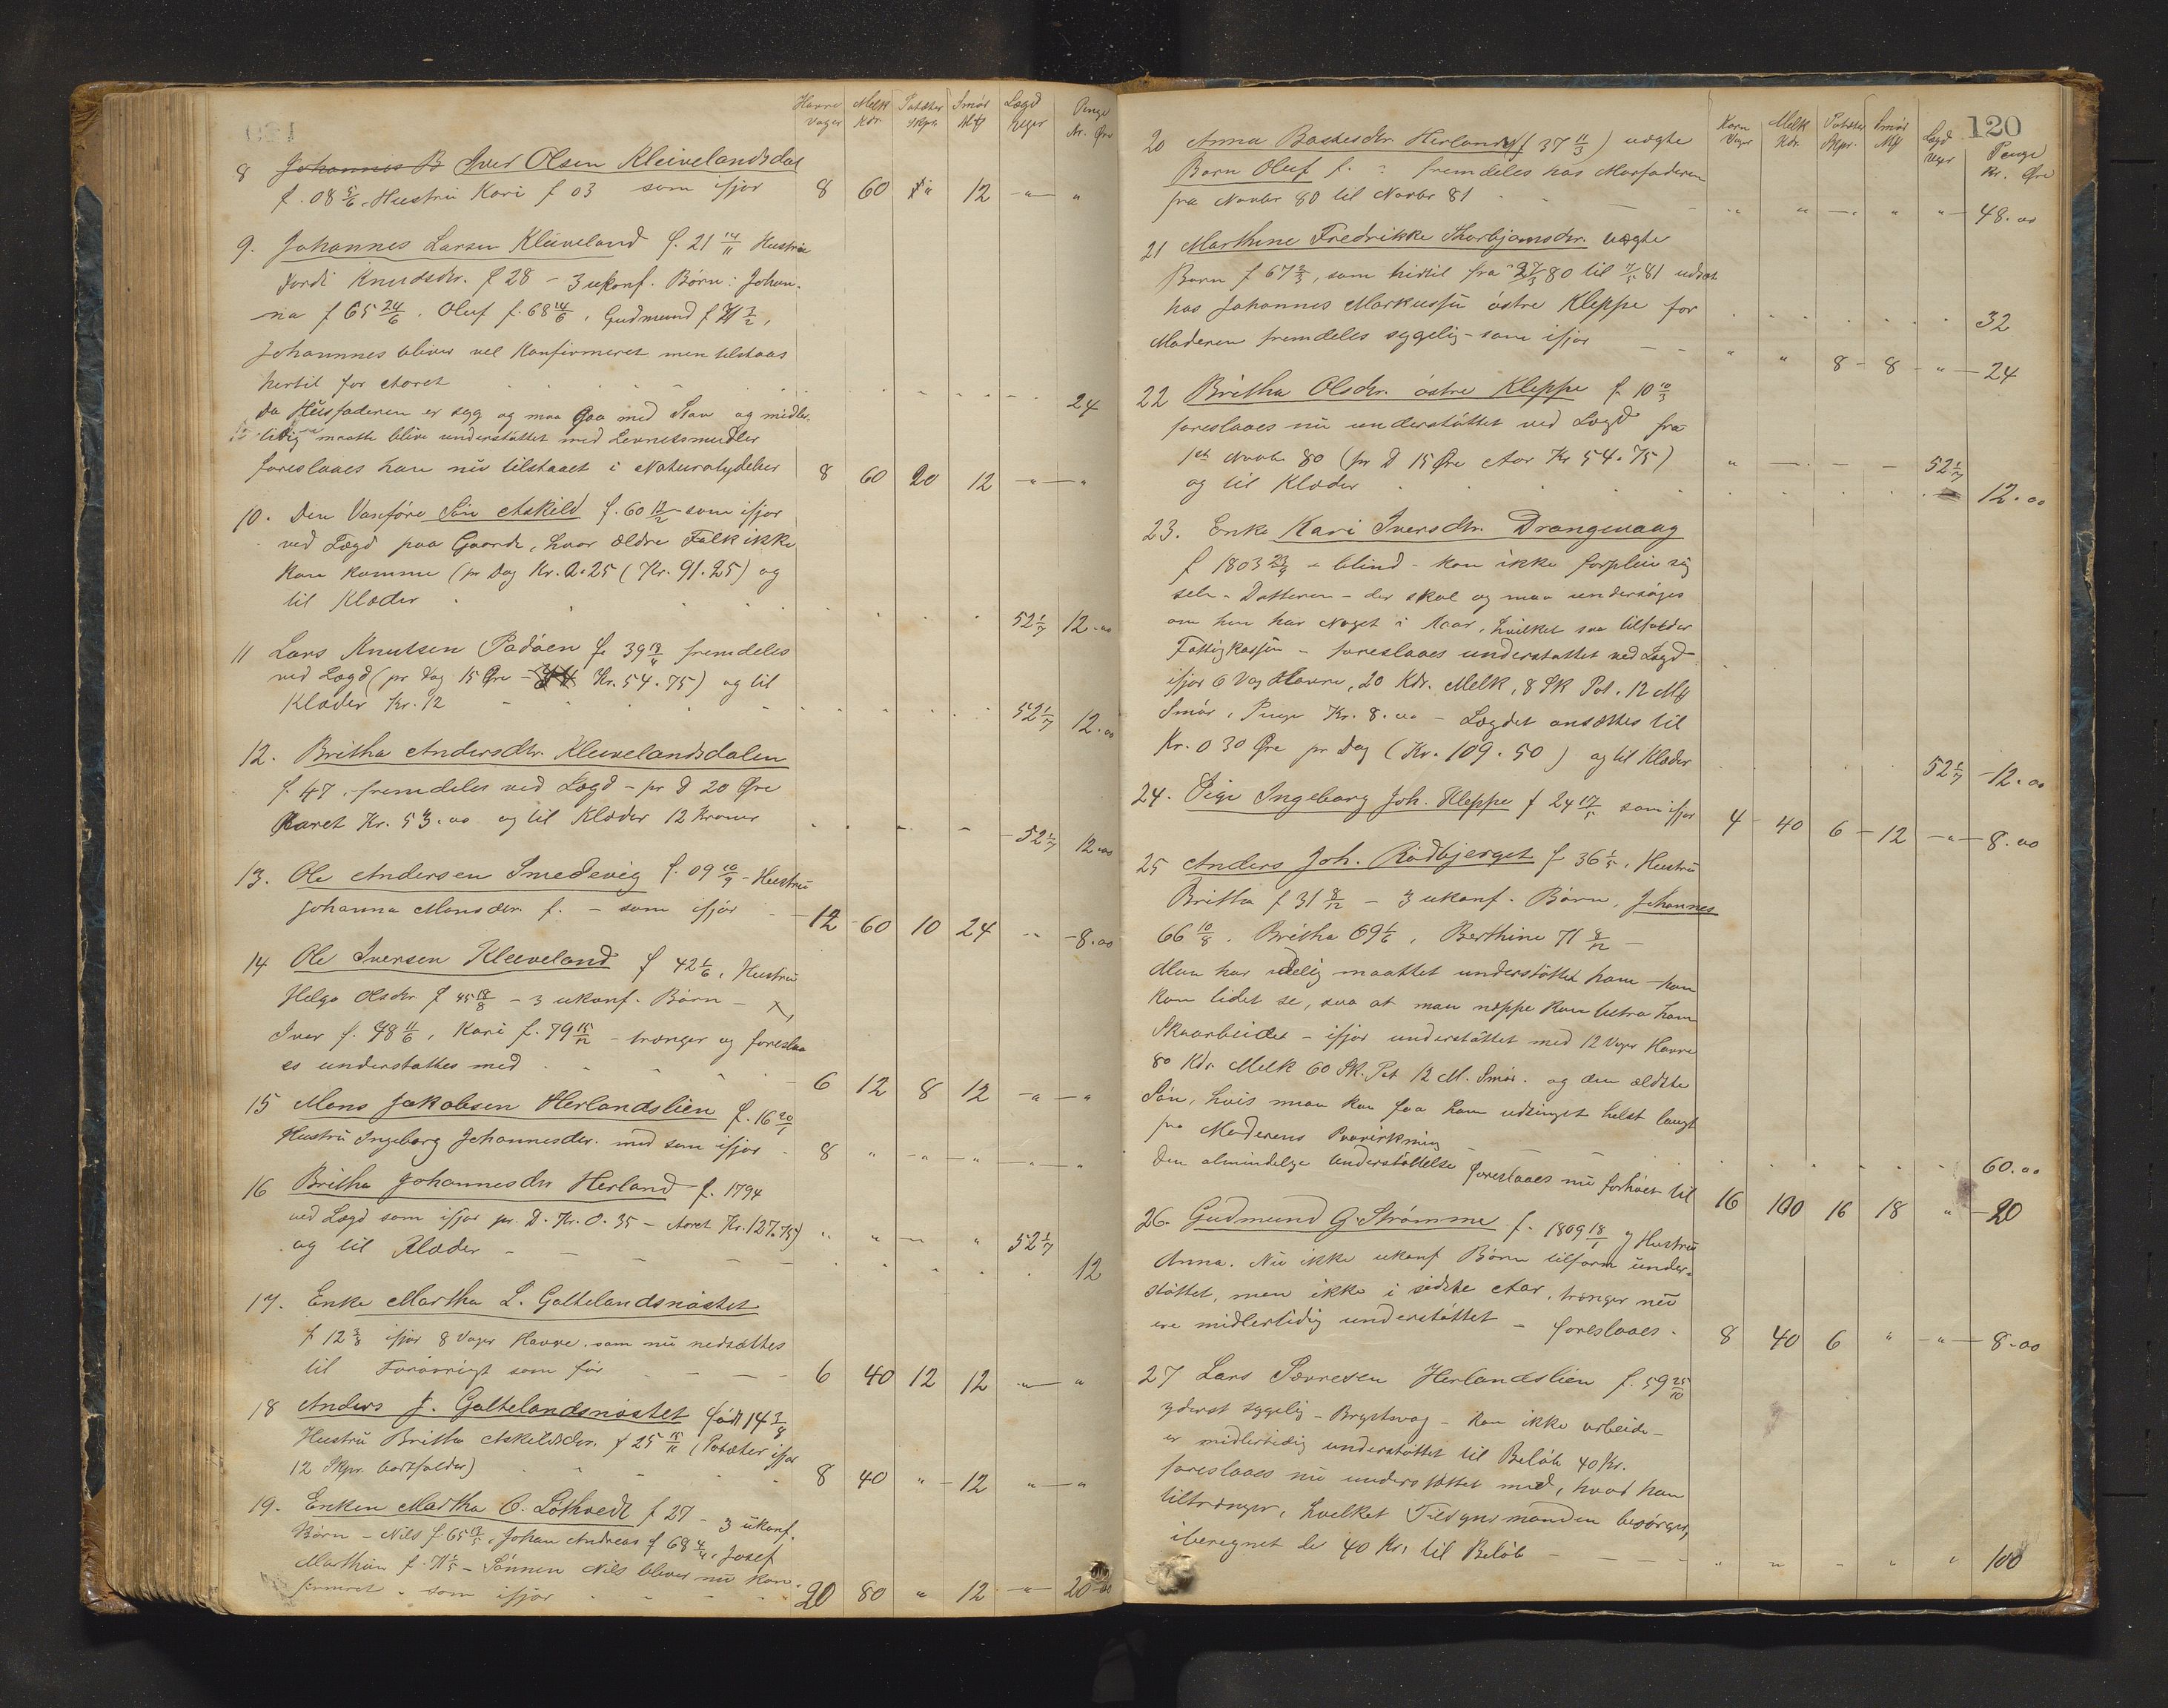 Havre Vager Melk Kdr. Potæter Skpr. Smør Mk Lægd Uger Penge Kr. Øre
8 Johannes B Iver Olsen Kleivelandsdal
f. 08 5/6. Hustru Kari f 03 som ifjor 8 60 " 12 " "
9. Johannes Larsen Kleiveland f. 21 14/11 Hustru
Jordi Knudsdtr. f 28 - 3 ukonf. Børn: Johan-
na f 65 24/6. Oluf f. 68 14/6, Gudmund f 71 7/2,
Johannes bliver vel Konfirmeret men tilstaaes
hertil for Aaret 24
Da Husfaderen er syg og maa gaa med Stav og midler-
tidig maatte blive understøttet med Levnetsmidler
foreslaaes han nu tilstaaet i Naturalydelser 8 60 20 12 " "
10. Den Vanføre Søn Askild f. 60 12/2 som ifjor
ved Lægd paa Gaarde, hvor ældre Folk ikke
kan komme (pr Dag Kr. 0.25 (Kr. 91.25) og
til Klæder 52 1/7 12.00
11 Lars Knutsen Padøen f. 39 13/4 fremdeles
ved Lægd (pr Dag 15 Øre - Kr. 54.75) og til
Klæder Kr. 12 52 1/7 12.00
12. Britha Andersdtr. Kleivelandsdalen
f. 47. fremdeles ved Lægd - pr D 20 Øre
Aaret Kr. 73.00 og til Klæder 12 Kroner 52 1/7 12.00
13. Ole Andersen Smedevig f. 09 10/9 - Hustru
Johanna Monsdtr. f. - som ifjor 12 60 10 24 " 8.00
14 Ole Iversen Kleiveland f 42 1/6, Hustru
Helga Olsdtr f 45 18/8 - 3 ukonf. Børn -
Iver f. 78 11/6, Kari f. 79 15/12 - trænger og foreslaa
es understøttes med 6 12 8 12 " "
15 Mons Jakobsen Herlandslien f. 16 20/1
Hustru Ingeborg Johannesdtr. med som ifjor 8 " " " " "
16 Britha Johannesdtr Herland f. 1794
ved Lægd som ifjor pr. D. Kr. 0.35 - Aaret Kr. 127.75) " " " " 52 1/7
og til Klæder 12
17. Enke Martha L. Galtelandsnøstet
f 12 3/4 ifjor 8 Vager Havre, som nu nedsættes
til Forøvrigt som før 6 40 12 12 " "
18 Anders J. Galtelandsnøstet født 14 3/4
Hustru Britha Askildsdtr. f 25 15/11 (Potæter ifjor
12 Skpr. bortfalder) 8 40 " 12 " "
19. Enken Martha O. Løthvedt f 27 - 3 ukonf.
Børn - Nils f. 65, Johan Andreas f 68, Josef
Marthin f. 71 - Sønnen Nils bliver nu kon-
firmeret - som ifjor 20 80 " 12 " 20.00
120
Korn Vager Melk Kdr. Potæter Skpr. Smør Mk Lægd Uger Penge Kr. Øre
20 Anna Baskesdtr. Herland (37 11/3) uægte
Barn Oluf f. fremdeles hos Morfaderen
fra Novbr 80 til Novbr 81 " " " " " 48.00
21 Marthine Fredrikke Thorbjørnsdtr. uægte
Barn f 67 2/3, som hidtil fra 80 til 81 udsat
hos Johannes Markussen østre Kleppe for 32
Moderen fremdeles sygelig - som ifjor " " 8 8 " 24
22 Britha Olsdtr. østre Kleppe f. 10 10/3
foreslaaes nu understøttet ved Lægd fra
1st Novbr 80 (pr D 15 Øre Aar Kr 54.75) " 52 1/7
og til Klæder 12.00
23. Enke Kari Iversdtr. Drangevaag
f 1803 23/9 - blind - kan ikke forpleie sig
selv - Datteren - der skal og maa undersøges
om hun har Noget i Kaar, hvilket saa tilfalder
Fattigkassen - foreslaaes understøttet ved Lægd -
ifjor 6 Vag Havre, 20 Kdr. Melk, 8 Sk Pot. 12 Mk
Smør, Penge Kr. 8.00 - Lægdet ansættes til
Kr. 0 30 Øre pr Dag (Kr. 109.50) og til Klæder 52 1/7 12.00
24. Pige Ingeborg Joh. Kleppe f 24 17/5 som ifjor 4 40 6 12 " 8.00
25 Anders Joh. Rødbjerget f 36 1/5, Hustru
Britha f 31 8/12 - 3 ukonf. Børn, Johannes
66 10/8. Britha 69 1/6, Berthine 71 8/12 -
Man har idelig maattet understøttet ham - han
kan lidet se, saa at man neppe kan betro ham
Skoarbeider - ifjor understøttet med 12 Vager Havre
80 Kdr. Melk 60 Sk. Pot 12 M. Smør. og den ældste
Søn, hvis man kan faa ham udtinget helst langt
fra Moderens Paavirkning 60.00
Den almindelige Understøttelse foreslaaes nu forhøiet til 16 100 16 18 " 20
26. Gudmund G. Strømme f. 1809 18/1 og Hustru
Anna. Nu ikke ukonf Børn tilforn under-
støttet, men ikke i sidste Aar, trænger nu
ere midlertidig understøttet - foreslaaes 8 40 6 " " 8.00
27 Lars Sørresen Herlandslien f. 59 25/10
yderst sygelig - Brystsvag - kan ikke arbeide -
er midlertidig understøttet til Beløb 40 Kr.
foreslaaes nu understøttet med, hvad han
tiltrænger, hvilket Tilsynsmanden besørger,
iberegnet de 40 Kr. til Beløb " " " " " 100